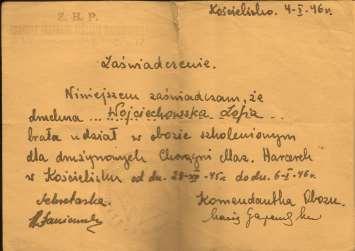 Kościelisko. 4-I-46r.
Z. H. P.
Zaświadczenie.
Niniejszem zaświadczam, że
druchna ... Wojciechowska Zofia ..
brała udział w obozie szkoleniowym
dla drużynowych Chorągwi Maz. Harcerek
w Kościelisku od dn. 28-XII-45r. do dn. 6-I-46r.
Sekretarka. Komendantka Obozu.